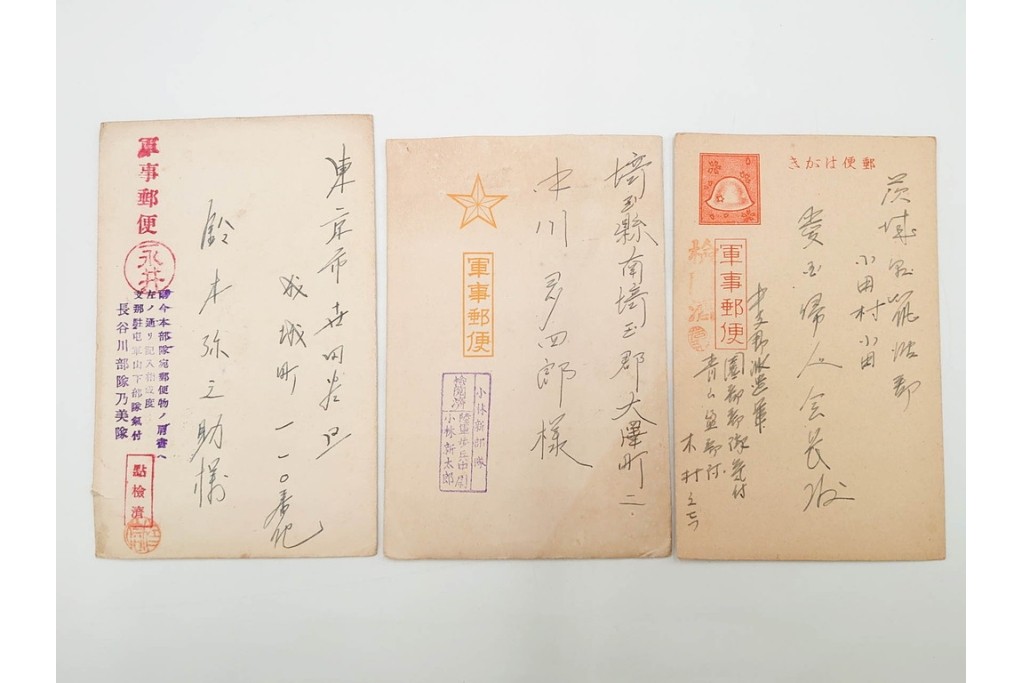 東京市世田谷区
成城町一一〇番地
鈴木弥之助様
軍事郵便
永井
今本部隊宛郵便物ノ肩書ヘ
左ノ通リ記入相成度
支那駐屯軍山下部隊氣付
長谷川部隊乃美隊
點檢濟
埼玉縣南埼玉郡大澤町二
中川多四郎様
軍事郵便
小林新部隊
檢閲濟
小林新太郎
郵便はがき
茨城県筑波郡
小田村小田
愛国婦人会長殿
軍事郵便
中支那派遣軍
園部部隊氣付
木村